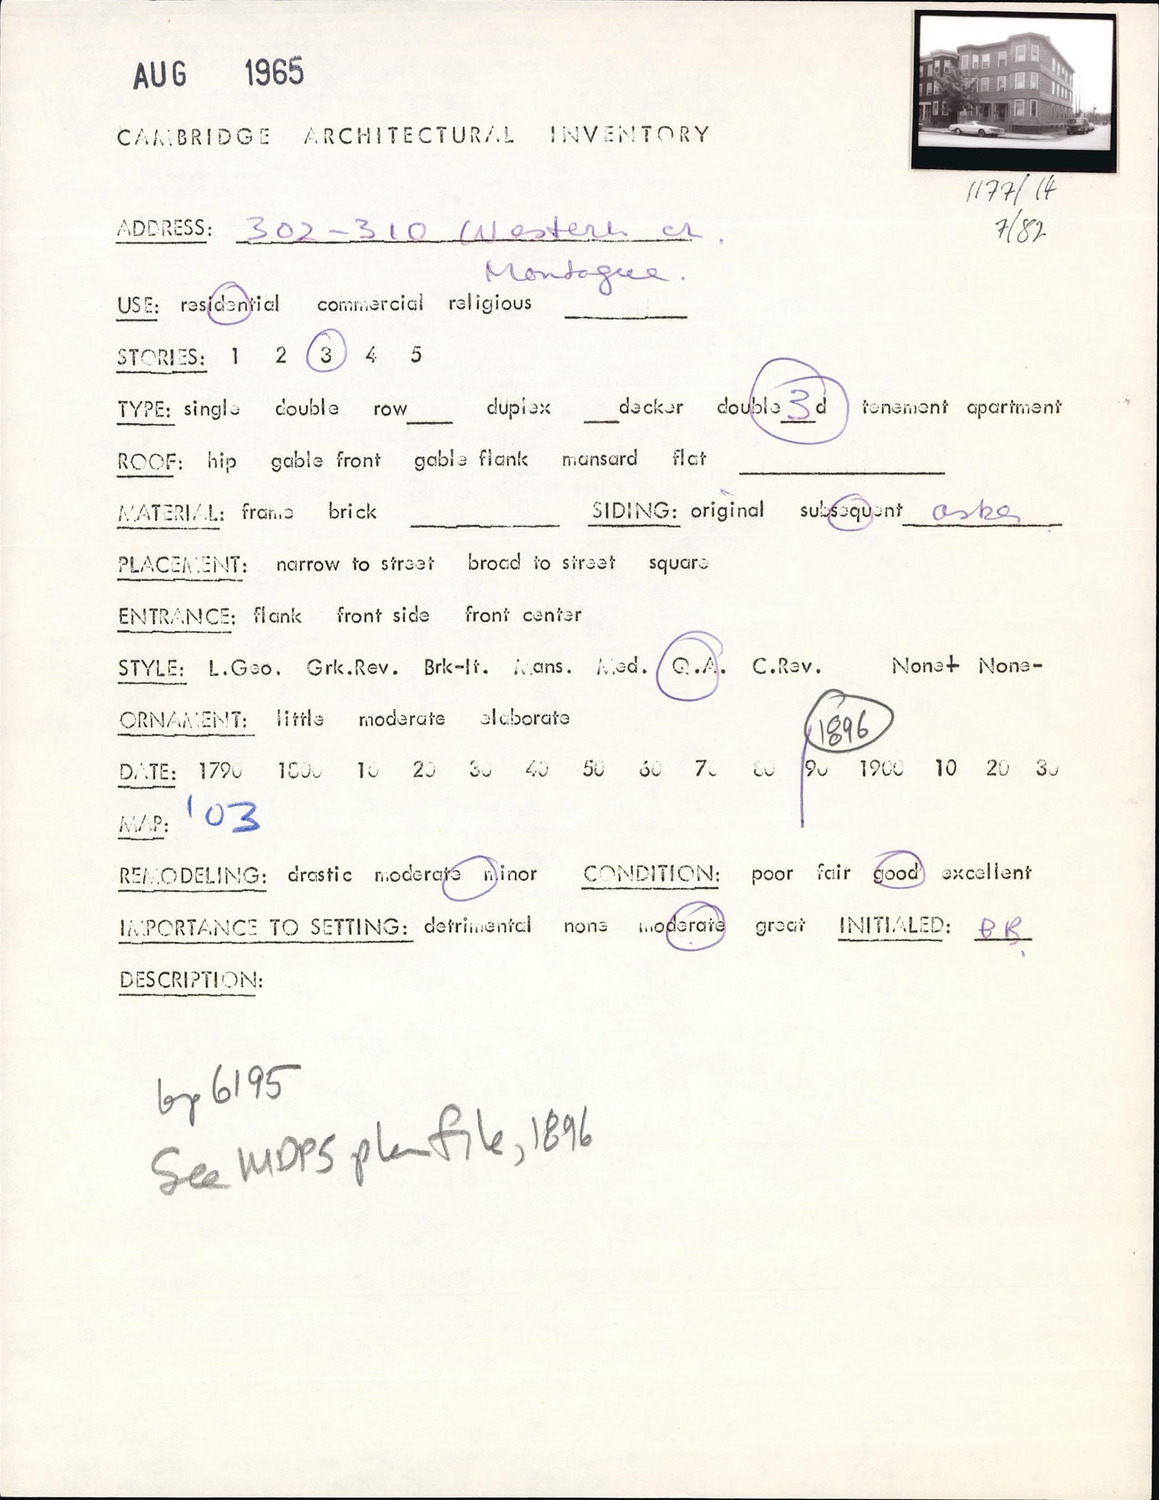 AUG 1965
CAMBRIDGE ARCHITECTURAL INVENTORY
1177/14
7/82
ADDRESS: 302-310 Western cr.
Montague.
USE: residential commercial religious
STORIES: 1 2 3 4 5
TYPE: single double row___ duplex ___decker double 3 d tenement apartment
ROOF: hip gable front gable flank mansard flat
MATERIAL: frame brick SIDING: original subsequent asbes
PLACEMENT: narrow to street broad to street square
ENTRANCE: flank front side front center
STYLE: L.Geo. Grk.Rev. Brk-It. Mans. Med. Q.A. C.Rev. None+ None-
ORNAMENT: little moderate elaborate
1896
DATE: 1790 1800 10 20 30 40 50 60 70 80 90 1900 10 20 30
MAP: '03
REMODELING: drastic moderate minor CONDITION: poor fair good excellent
IMPORTANCE TO SETTING: detrimental none moderate great INITIALED: BR.
DESCRIPTION:
bp 6195
See MDPS plan file, 1896